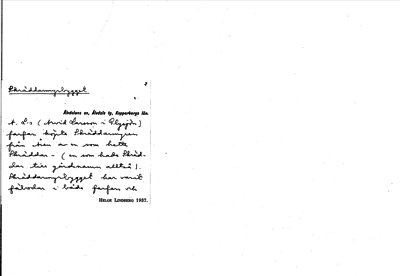 2
Skräddarmyrbygget
Älvdalens sn, Älvdals tg, Kopparbergs län.
A. L:s (Arvid Larsson i Elgsjön)
farfar köpte Skräddarmyren
från den av m som hette
Skräddar - (en som hade Skräd-
dar till gårdsnamn alltså).
Skräddarmyrbygget har varit
fäbodar i både farfars och
HELGE LINDBERG 1937.